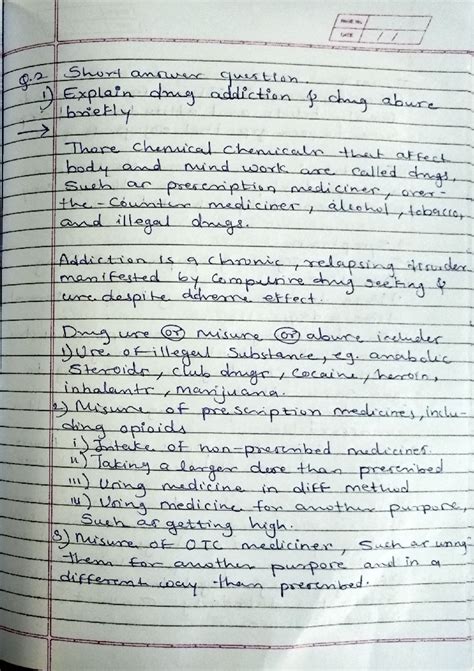 PAGE No.
DATE / /
Q.2 Short answer question.
1) Explain drug addiction & drug abuse
briefly
→
Those chemical chemicals that affect
body and mind work are called drugs.
Such as prescription medicines, over-
the-counter medicines, alcohol, tobacco,
and illegal drugs.
Addiction is a chronic, relapsing disorder
manifested by compulsive drug seeking &
use despite adverse effect.
Drug use or misuse or abuse includes
1) Use of illegal substance, eg. anabolic
steroids, club drugs, cocaine, heroin,
inhalants, marijuana.
2) Misuse of prescription medicines, inclu-
ding opioids
i) Intake of non-prescribed medicines.
ii) Taking a larger dose than prescribed
iii) Using medicine in diff method
iv) Using medicine for another purpose,
Such as getting high.
3) Misuse of OTC medicines, Such as using
them for another purpose and in a
different way than prescribed.